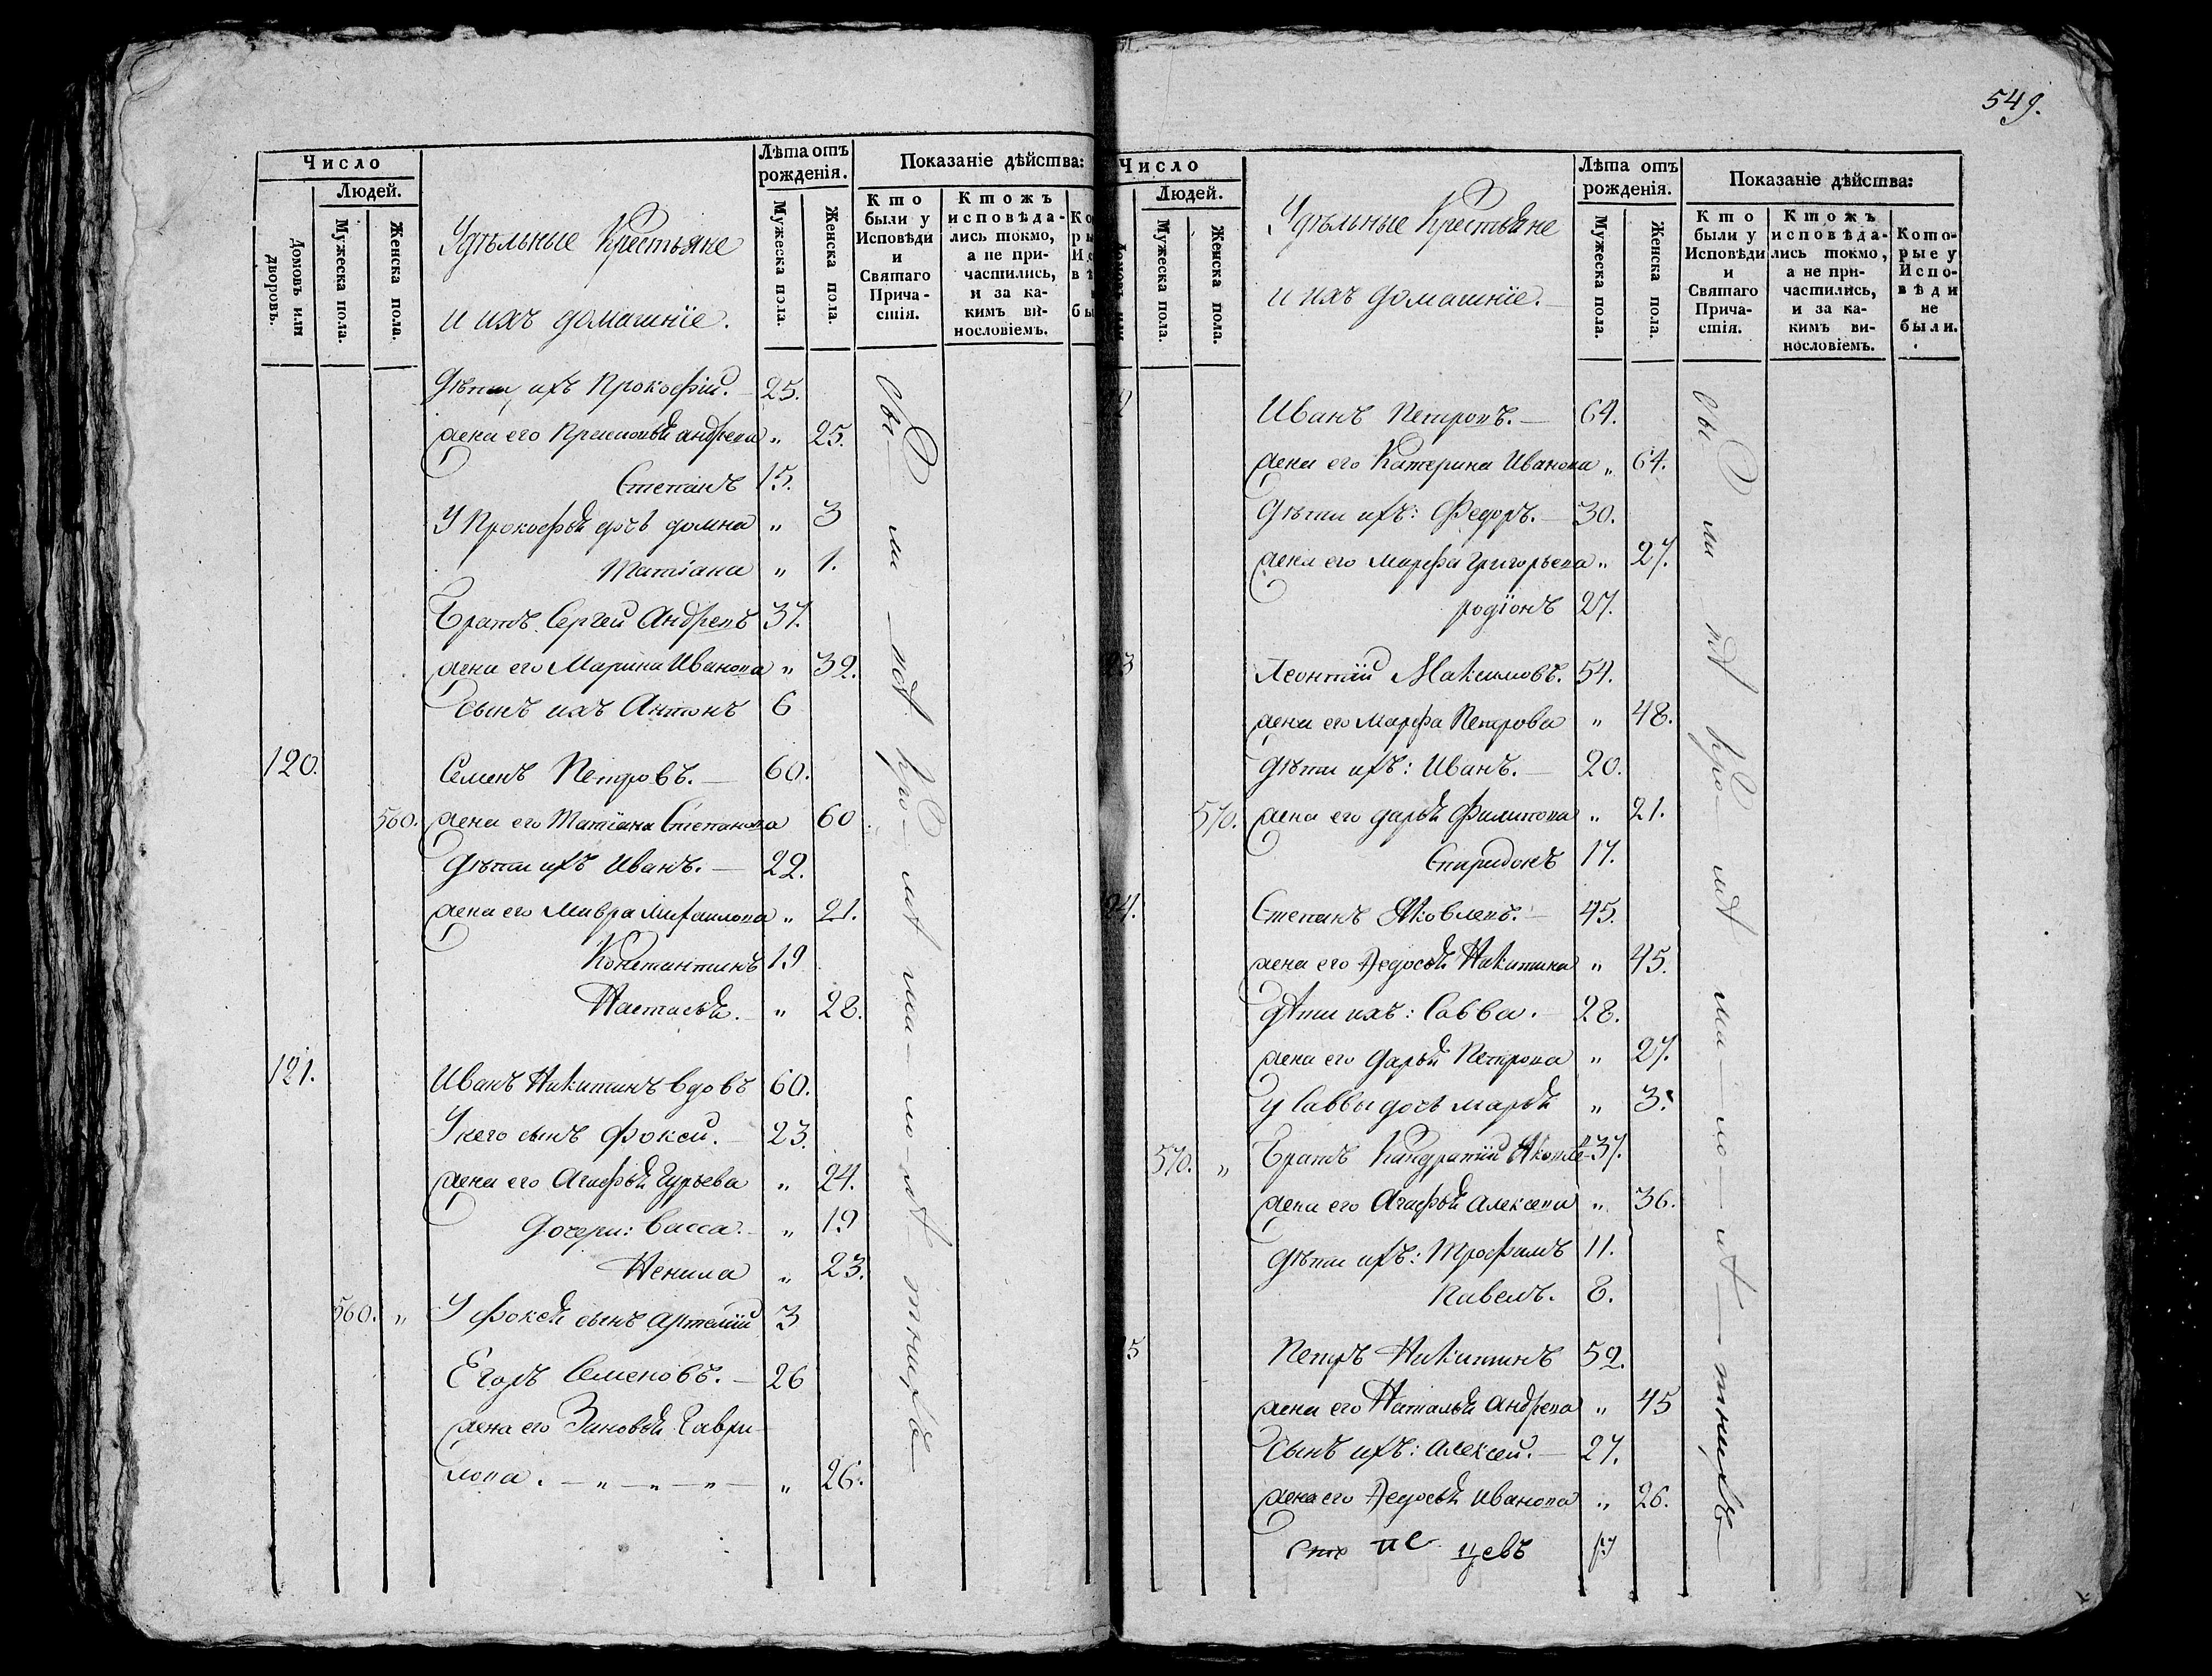 Число
Людей.
Домовъ или дворовъ.
Мужеска пола.
Женска пола.
Удѣльные Крестьяне
и ихъ домашнїе.
Лѣта отъ рожденія.
Мужеска пола.
Женска пола.
Показаніе дѣйства:
Кто были у Исповѣди и Святаго Причастія.
Ктожъ исповѣдались токмо, а не причастились, и за какимъ винословіемъ.
Дѣти ихъ Прокофїй. — 25.
жена его Андрева „ 25.
Степанъ 15.
У Прокофья дочь домна „ 3
Татїана „ 1.
Братъ Сергей Андревъ 37.
жена его Марина Иванова „ 39.
сынъ ихъ Антонъ 6
120. Семенъ Петровъ. — 60.
560. жена его Татїана Степанова 60
Дѣти ихъ Иванъ. — 22.
жена его Мавра Михаилова „ 21.
Константинъ 19
Настасья. „ 28.
121. Иванъ Никитинъ вдовъ 60.
У него сынъ Фокей. — 23.
жена его Агафья Гурьева „ 24.
Дочери: Васса. „ 19
Ненила „ 23.
560. „ У Фокея сынъ Артемїй 3
Егоръ Семеновъ. — 26
жена его Зиновья Гаври-
лова. — „ — „ — „ — „ 26.
549.
Число
Людей.
Мужеска пола.
Женска пола.
Удѣльные Крестьяне
и ихъ домашнїе.
Лѣта отъ рожденія.
Мужеска пола.
Женска пола.
Показаніе дѣйства:
Кто были у Исповѣди и Святаго Причастія.
Ктожъ исповѣдались токмо, а не причастились, и за какимъ винословіемъ.
Которые у Исповѣди не были.
Иванъ Петровъ. — 64.
жена его Катерина Иванова „ 64.
Дѣти ихъ: Федоръ. — 30.
жена его Марфа Григорьева „ 27.
родїонъ 27.
Леонтїй Максимовъ. 54.
жена его Марфа Петрова „ 48.
Дѣти ихъ: Иванъ. — 20.
570. жена его дарья Филипова „ 21.
Спиридонъ 17.
24. Степанъ Яковлевъ. — 45.
жена его Федосья Никитина „ 45.
дѣти ихъ: Савва. — 28.
жена его Дарья Петрова „ 27.
у Саввы дочь марья „ 3.
570. „ Братъ Кандратїй Яковле 37.
жена его Агафья Алексева „ 36.
Дѣти ихъ: Трофимъ 11.
Павелъ. 8.
Петръ Никитинъ 52.
жена его Наталья Андрева „ 45
Сынъ ихъ: Алексей. — 27.
жена его Федосья Иванова „ 26.